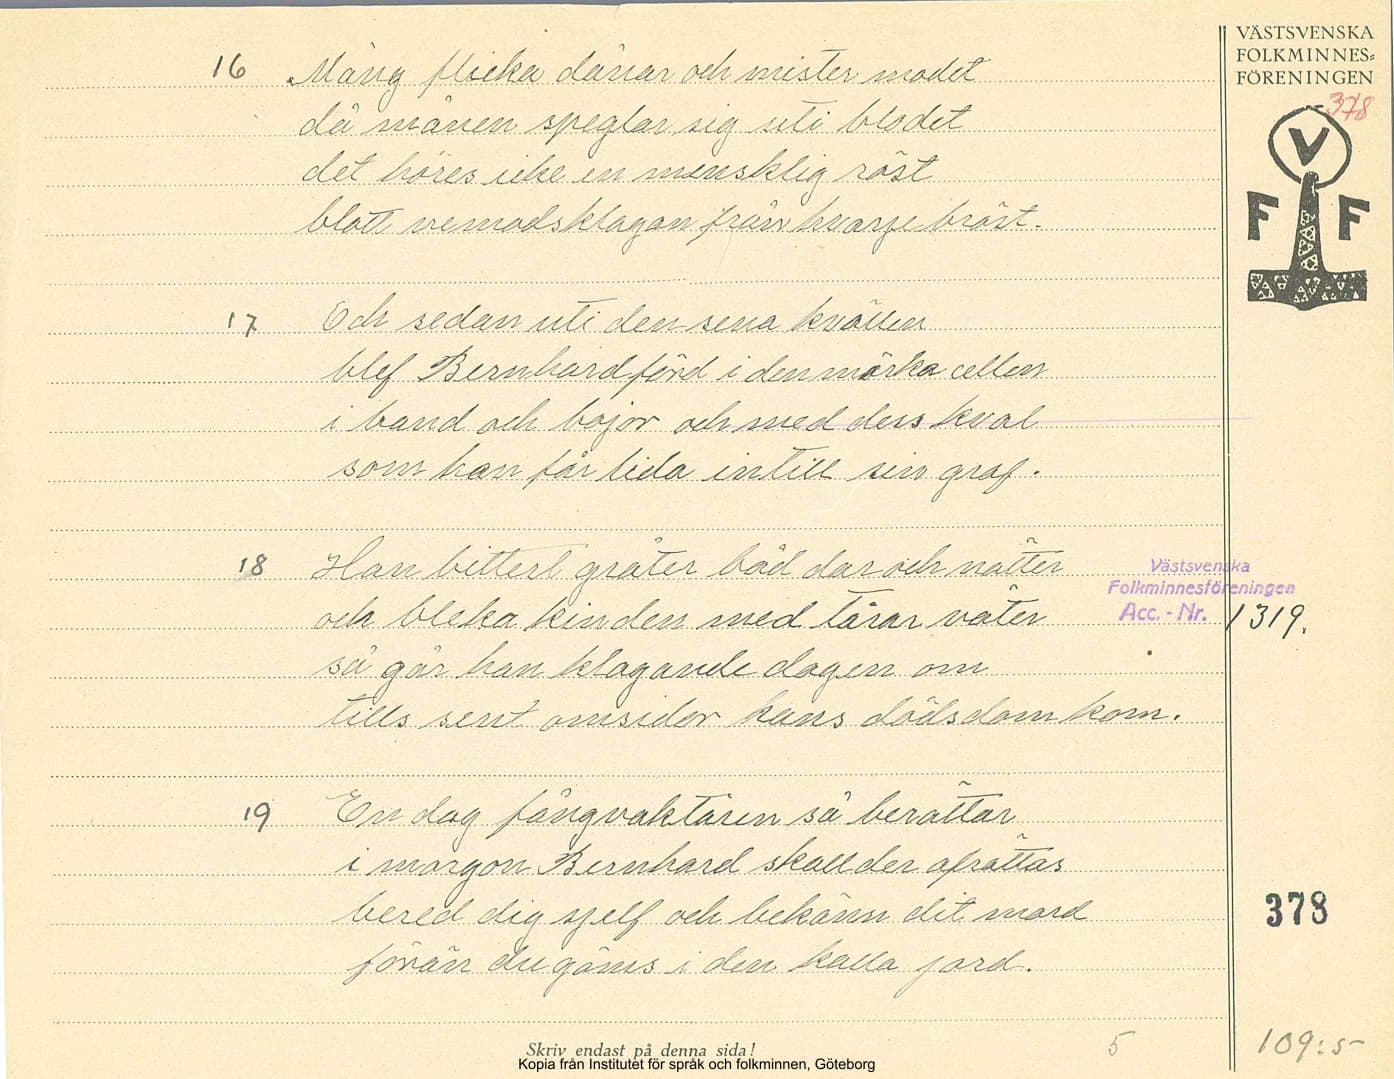 VÄSTSVENSKA
FOLKMINNES=
FÖRENINGEN
378
V
F F
16 Mång flicka dånar och mister modet
då månen speglar sig uti blodet
det höres icke en mensklig röst
blott vemodsklagan från hvarje bröst.
17 Och sedan uti den sena kvällen
blef Bernhard förd i den mörka cellen
i band och bojor och med dess kval
som han får lida intill sin graf.
18 Han bitterl gråter båd dar och nätter
och bleka kinden med tårar väter
så går han klagande dagen om
tills sent omsidor hans dödsdom kom.
Västsvenska
Folkminnesföreningen
Acc.-Nr. 1319.
19 En dag fångvaktaren så berättar
i morgon Bernhard skall der afrättas
bered dig sjelf och bekänn dit mord
förän du göms i den kalla jord.
378
Skriv endast på denna sida!
5
109:5-
Kopia från Institutet för språk och folkminnen, Göteborg